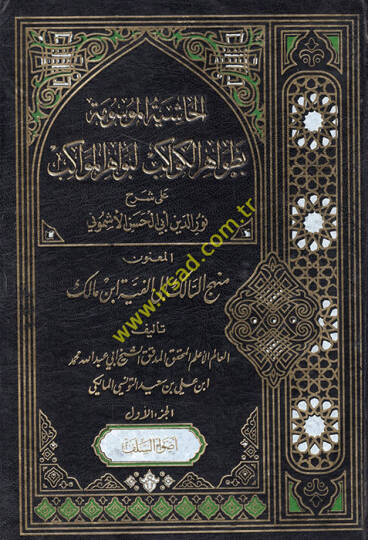 الحاشية الموسومة
بظواهر الكواكب لبواهر المواكب
على شرح
نور الدين أبي الحسن الأشموني
المعنون
منهج السالك إلى ألفية ابن مالك
تأليف
العالم الأعلم المحقق المدقق الشيخ أبي عبد الله محمد
ابن علي بن سعيد التونسي المالكي
الجزء الأول
أضواء السلف
www.irsad.com.tr